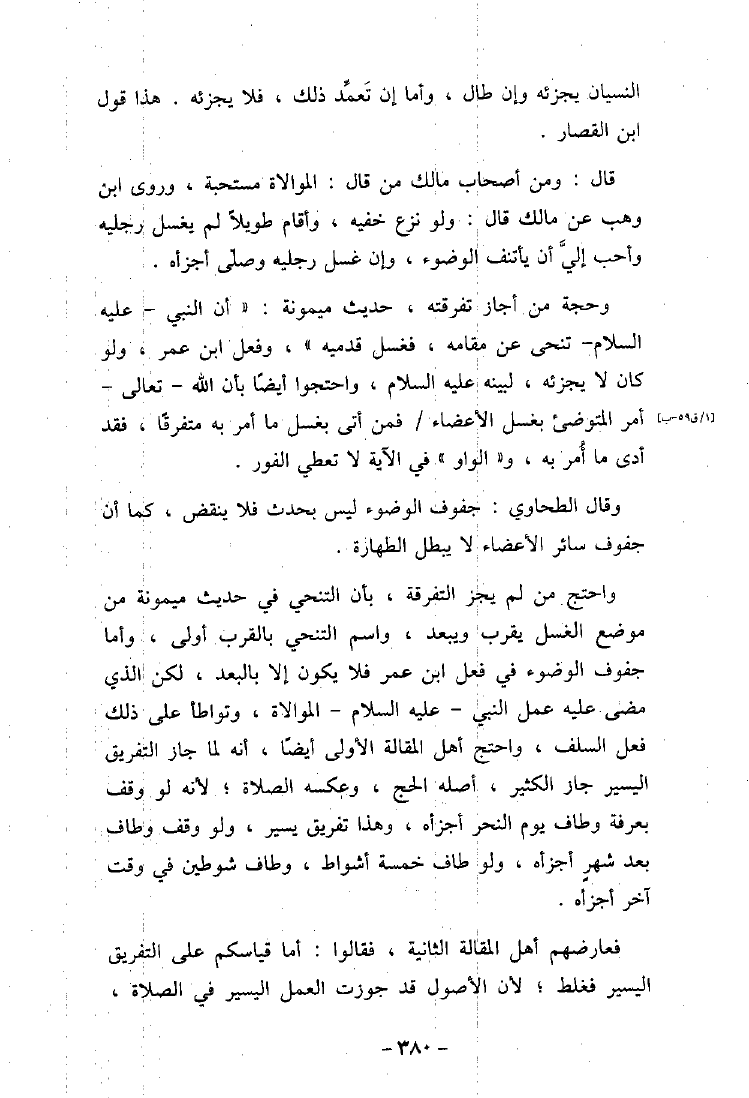 النسيان يجزئه وإن طال ، وأما إن تَعمَّد ذلك ، فلا يجزئه . هذا قول
ابن القصار .
قال : ومن أصحاب مالك من قال : الموالاة مستحبة ، وروى ابن
وهب عن مالك قال : ولو نزع خفيه ، وأقام طويلاً لم يغسل رجليه
وأحب إليَّ أن يأتنف الوضوء ، وإن غسل رجليه وصلّى أجزأه .
وحجة من أجاز تفرقته ، حديث ميمونة : « أن النبي – عليه
السلام– تنحى عن مقامه ، فغسل قدميه » ، وفعل ابن عمر ، ولو
كان لا يجزئه ، لبينه عليه السلام ، واحتجوا أيضًا بأن الله – تعالى –
أمر المتوضئ بغسل الأعضاء / فمن أتى بغسل ما أمر به متفرقًا ، فقد [١/ق٥٩-ب]
أدى ما أُمر به ، و« الواو » في الآية لا تعطي الفور .
وقال الطحاوي : جفوف الوضوء ليس بحدث فلا ينقض ، كما أن
جفوف سائر الأعضاء لا يبطل الطهارة .
واحتج من لم يجز التفرقة ، بأن التنحي في حديث ميمونة من
موضع الغسل يقرب ويبعد ، واسم التنحي بالقرب أولى ، وأما
جفوف الوضوء في فعل ابن عمر فلا يكون إلا بالبعد ، لكن الذي
مضى عليه عمل النبي – عليه السلام – الموالاة ، وتواطأ على ذلك
فعل السلف ، واحتج أهل المقالة الأولى أيضًا ، أنه لما جاز التفريق
اليسير جاز الكثير ، أصله الحج ، وعكسه الصلاة ؛ لأنه لو وقف
بعرفة وطاف يوم النحر أجزأه ، وهذا تفريق يسير ، ولو وقف وطاف
بعد شهرٍ أجزأه ، ولو طاف خمسة أشواط ، وطاف شوطين في وقت
آخر أجزأه .
فعارضهم أهل المقالة الثانية ، فقالوا : أما قياسكم على التفريق
اليسير فغلط ؛ لأن الأصول قد جوزت العمل اليسير في الصلاة ،
– ٣٨٠ –